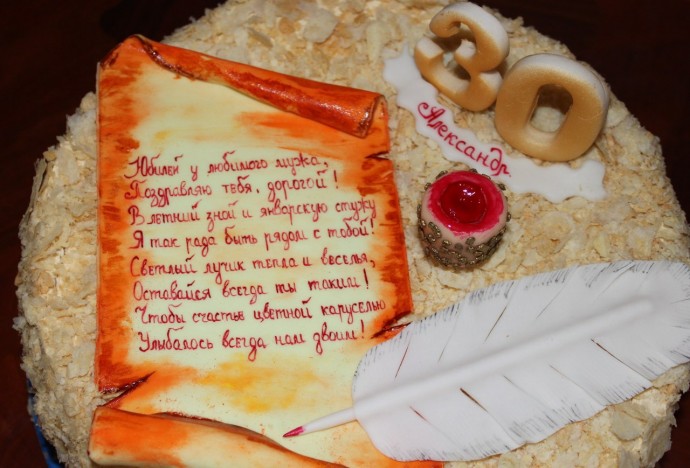 30
Александр
Юбилей у любимого мужа,
Поздравляю тебя, дорогой!
В летний зной и январскую стужу
Я так рада быть рядом с тобой!
Светлый лучик тепла и веселья,
Оставайся всегда ты таким!
Чтобы счастье цветной каруселью
Улыбалось всегда нам двоим!